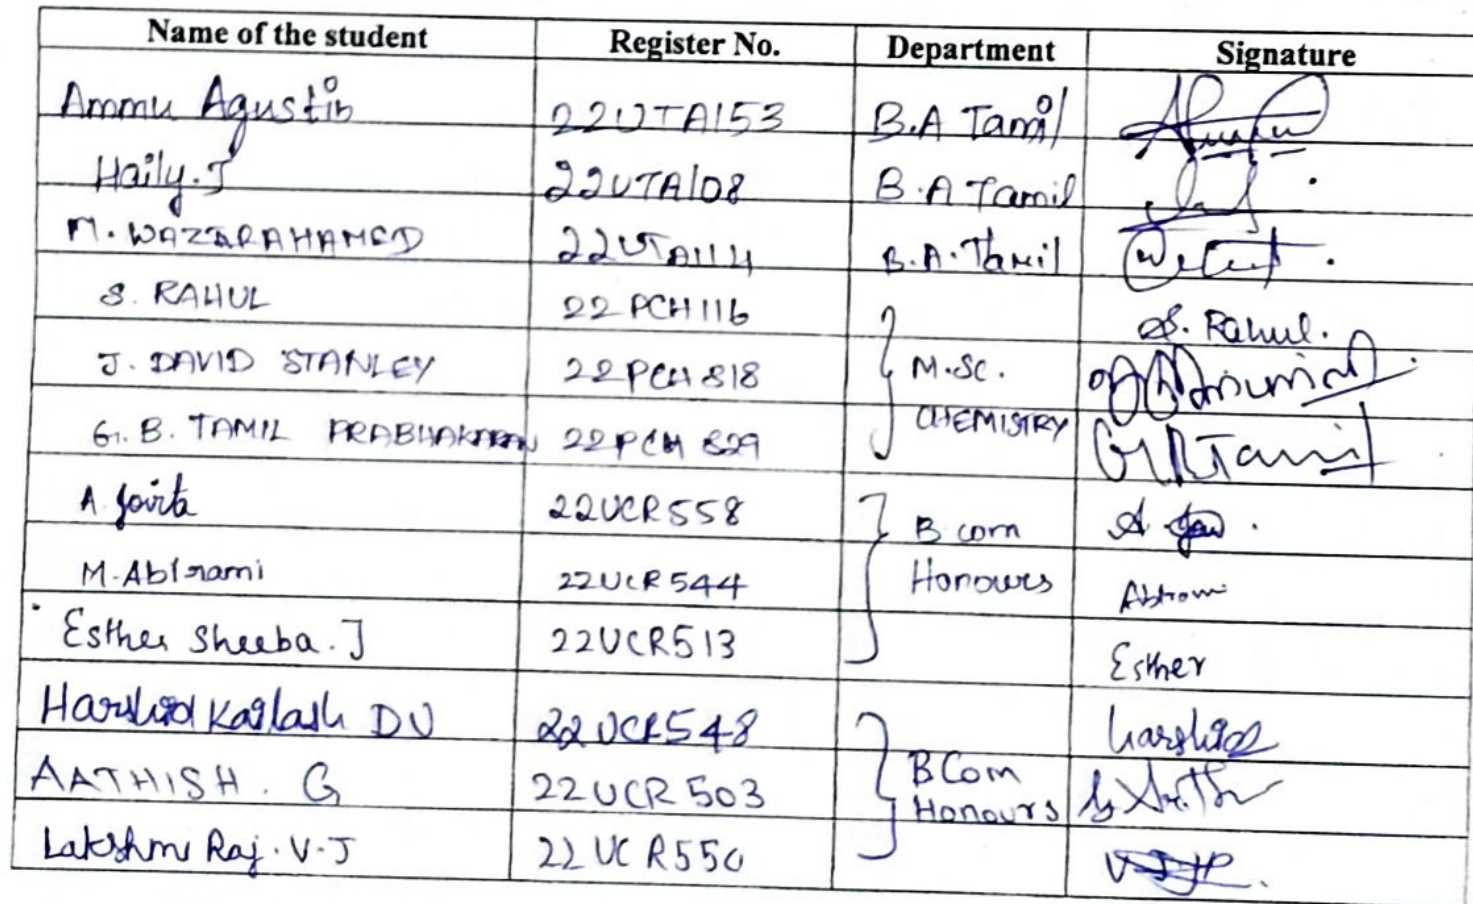 Name of the student Register No. Department Signature
Ammu Agustin 22UTA153 B.A Tamil
Haily.J 22UTA108 B.A Tamil
M. WAZIRAHAMED 22UTA114 B.A. Tamil
S. RAHUL 22PCH116 S. Rahul.
J. DAVID STANLEY 22PCH818 M.SC.
G. B. TAMIL PRABHAKARAN 22PCH 829 CHEMISTRY G.B.Tamil
A. Jovita 22UCR558 B com
M. Abirami 22UCR544 Honours Abirami
Esther Sheeba. J 22UCR513 Esther
Harshid Kailash DV 22UCR548 harshid
AATHISH. G 22UCR503 BCom Honours
Lakshmi Raj. V.J 22UCR550